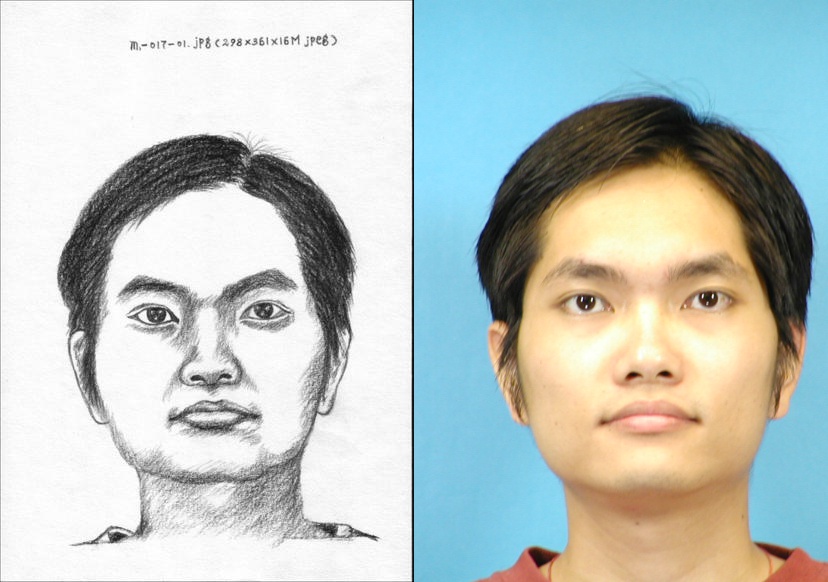 m-017-01.jpg (298x361x16M jpeg)